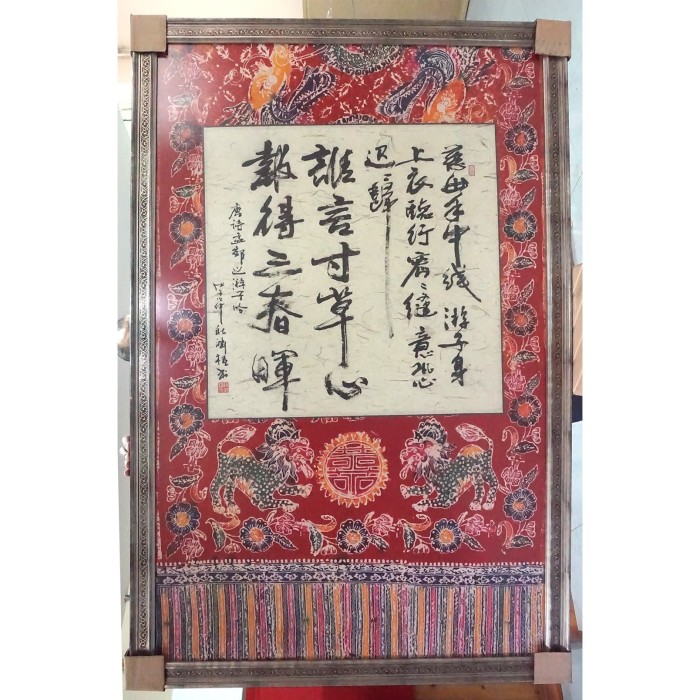 慈母手中線 游子身
上衣臨行密々縫 意恐
迟々歸
誰言寸草心
報得三春暉
唐詩孟郊之游子吟
仲秋